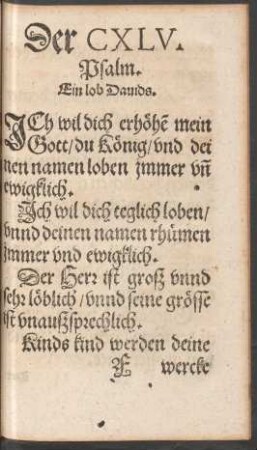 Der CXLV.
Psalm.
Ein lob Dauids.
ICh wil dich erhöhē mein
Gott/du König/vnd dei
nen namen loben ymmer vn̄
ewigklich.
Ich wil dich teglich loben/
vnnd deinen namen rhümen
ymmer vnd ewigklich.
Der Herr ist groß vnnd
sehr löblich/vnnd seine grösse
ist vnaußsprechlich.
Kinds kind werden deine
F wercke